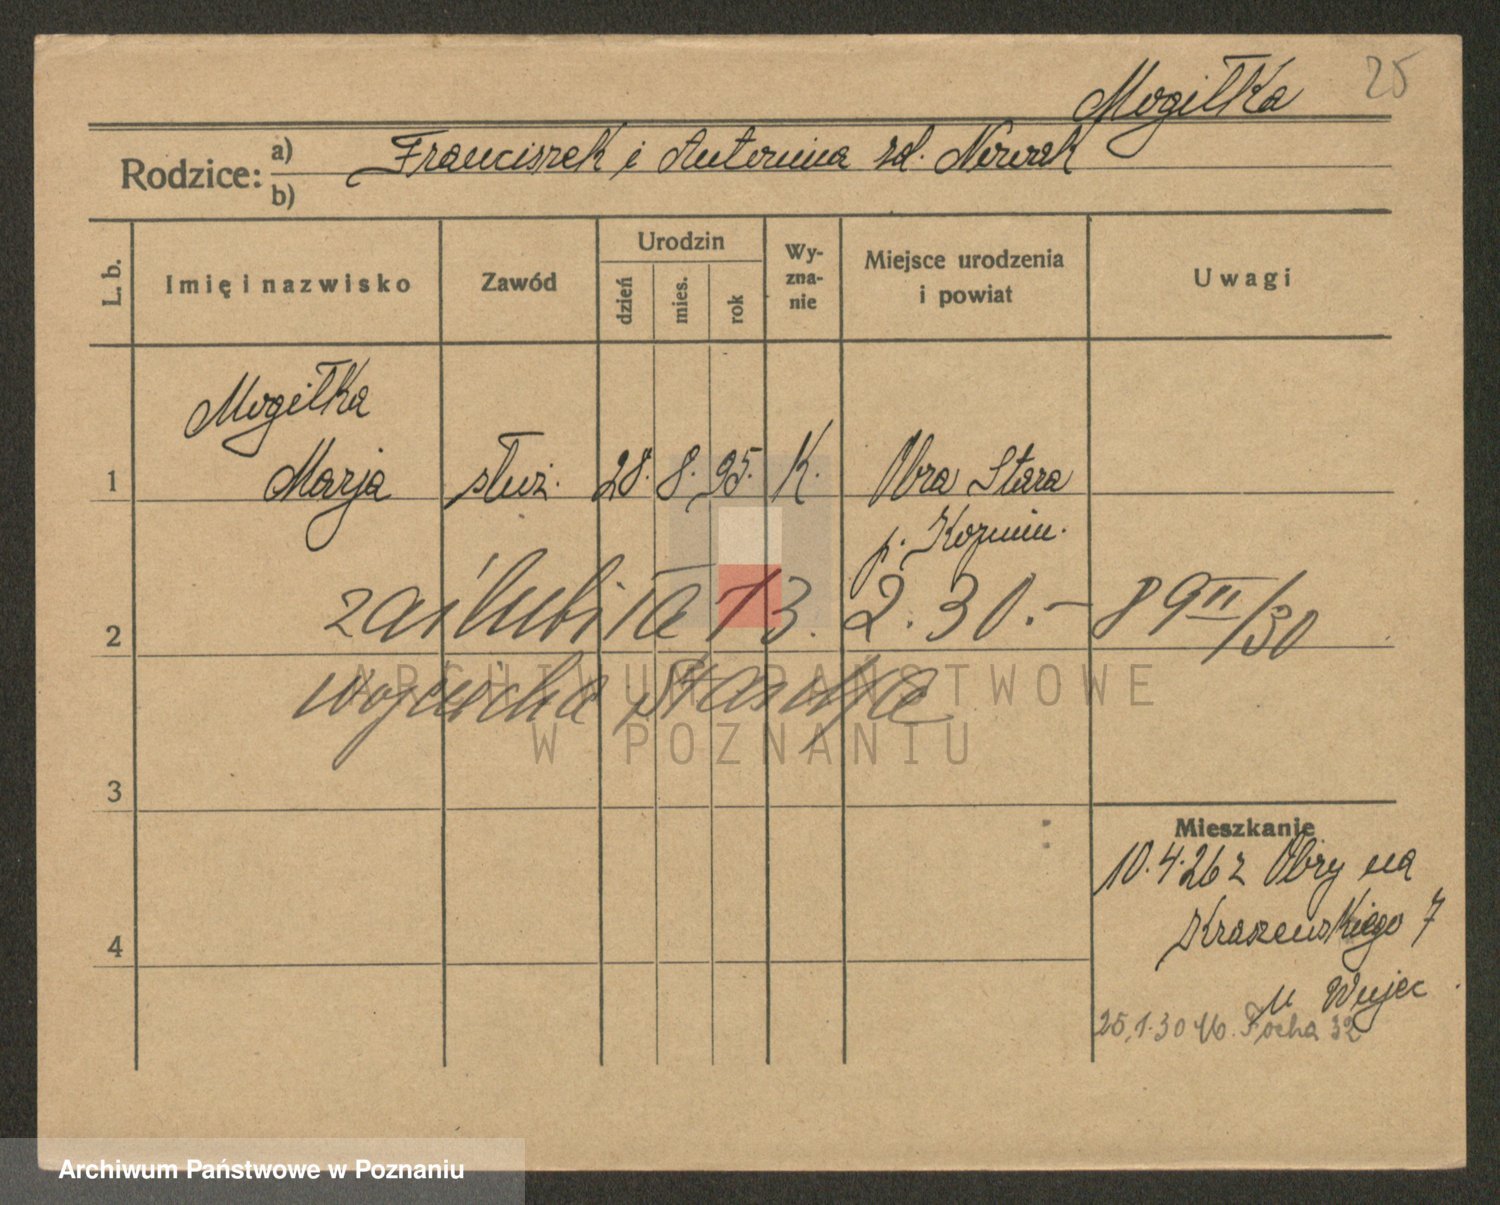 Mogiłka 25
Rodzice: a) Franciszek i Antonina zd. Nowak
b)
L. b.
Imię i nazwisko
Zawód
Urodzin
dzień
mies.
rok
Wy-
zna-
nie
Miejsce urodzenia
i powiat
Uwagi
Mogiłka
1 Marja służ. 28. 8. 95. K. Obra Stara
p. Koźmin.
2 zaślubiła 13. 2. 30. – 89 II/30
Wojciecha
ARCHIWUM PAŃSTWOWE
W POZNANIU
3
Mieszkanie
10.4.26 z Obry na
Kraszewskiego 7
4
u Wujec
25.1.30 Focha 32
Archiwum Państwowe w Poznaniu